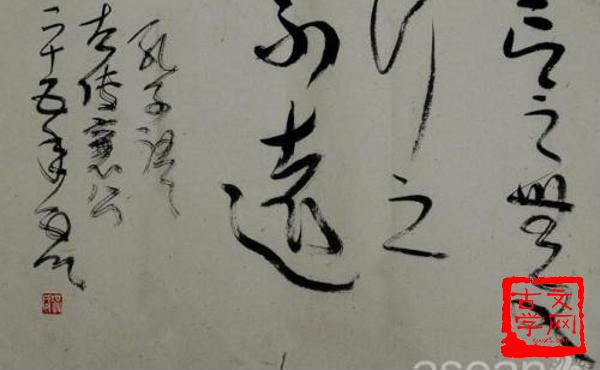 言之無文
行之
不遠
孔子語
左传襄公
二十五年
古文
学网